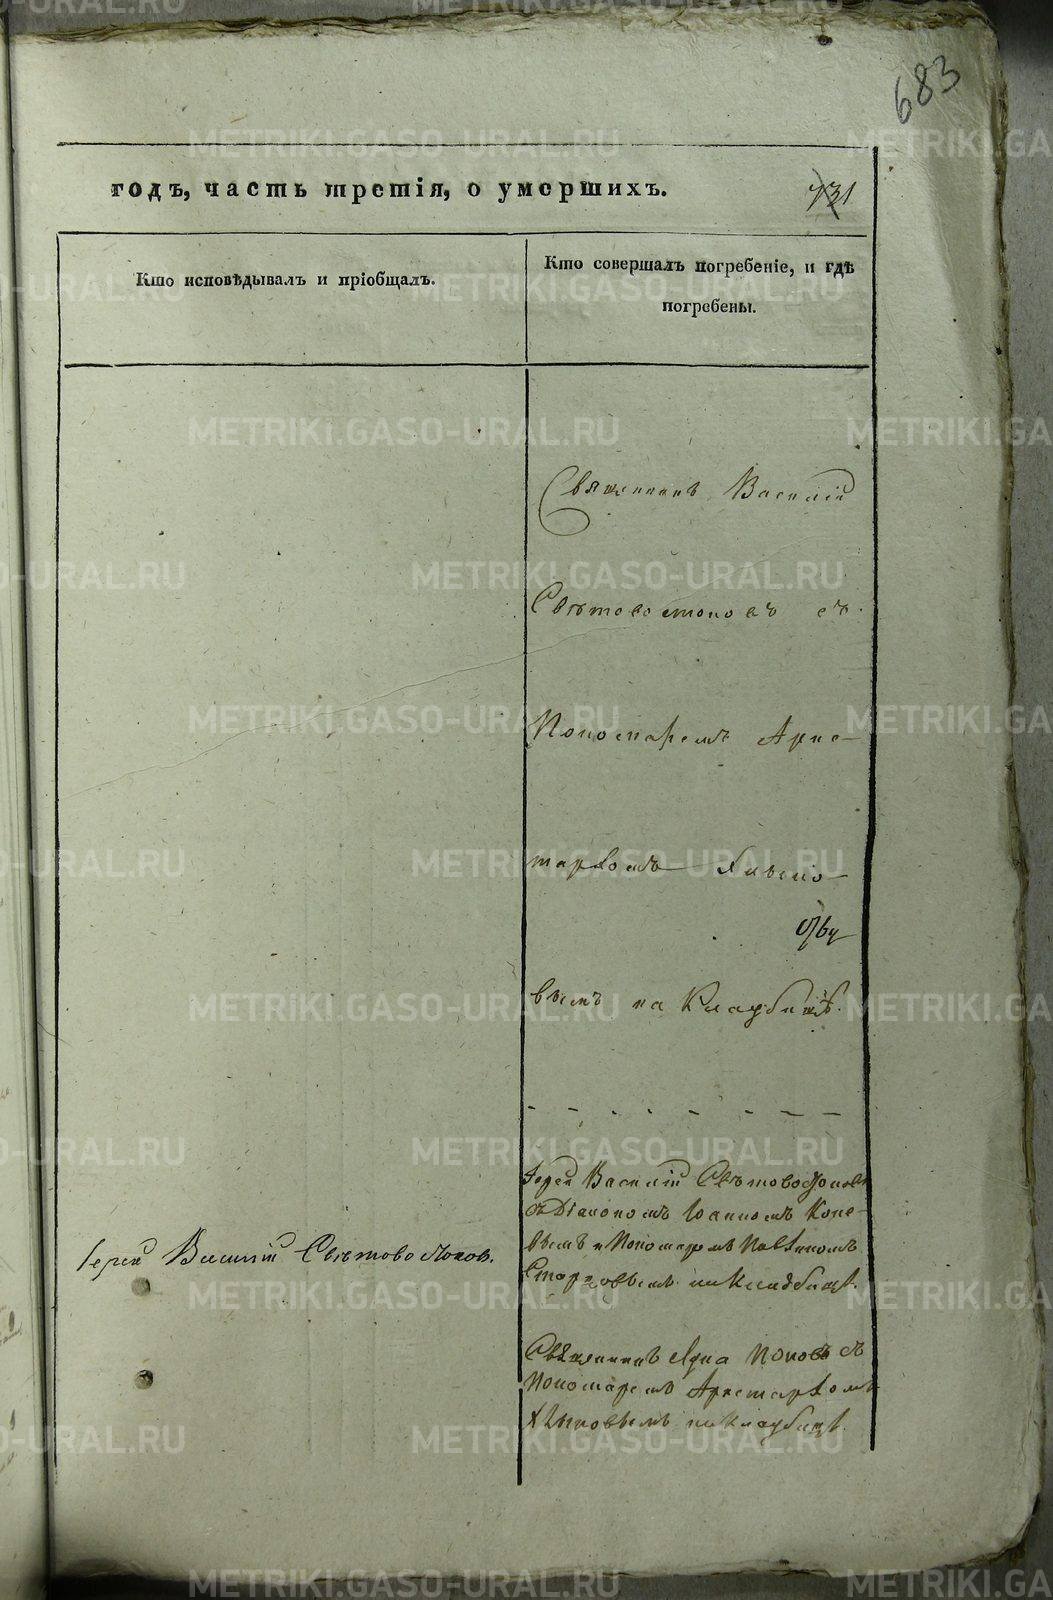 683
годъ, часть третія, о умершихъ.
131
Кто исповѣдывалъ и пріобщалъ.
Кто совершалъ погребеніе, и гдѣ
погребены.
Священникъ Василій
Свѣтовостоковъ съ
Пономаремъ Арис-
тархомъ
вымъ на Кладбищѣ.
Іерей Василій Свѣтовостоковъ
съ Діакономъ Іоанномъ Коне-
вымъ и Пономаремъ
на Кладбищѣ.
Іерей Василій Свѣтовостоковъ.
Священникъ Поповъ съ
Пономаремъ Аристархомъ
на Кладбищѣ.
METRIKI.GASO-URAL.RU